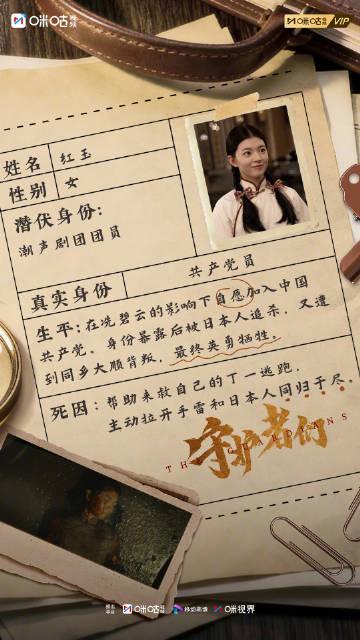 咪咕视频
咪咕视频 VIP
姓名 红玉
性别 女
潜伏身份:
潮声剧团团员
真实身份 共产党员
生平:在冼碧云的影响下自愿加入中国
共产党。身份暴露后被日本人追杀,又遭
到同乡大顺背叛,最终英勇牺牲。
死因:帮助来救自己的丁一逃跑,
主动拉开手雷和日本人同归于尽。
守护者们
THE GUARDIANS
咪咕视频 移动高清 咪视界